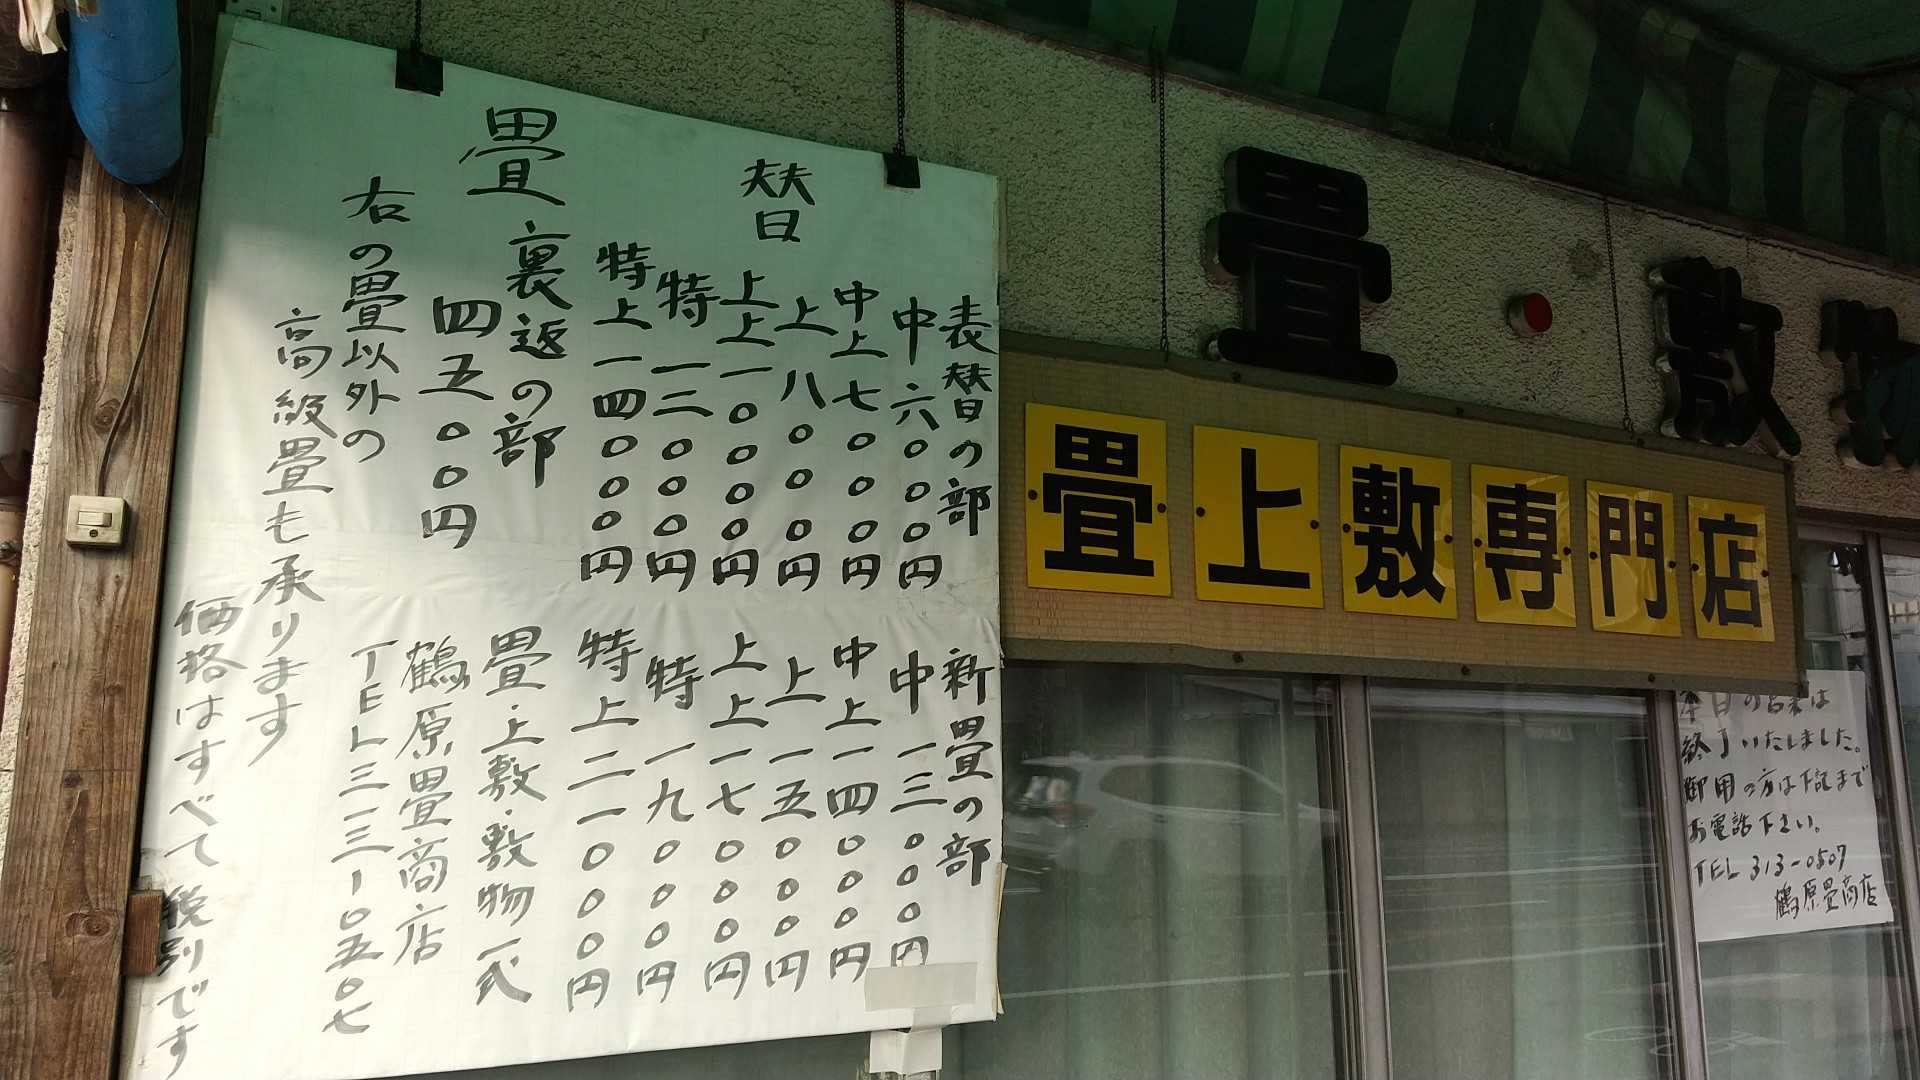 畳替
表替の部
中六〇〇〇円
中上七〇〇〇円
上八〇〇〇円
上上一〇〇〇〇円
特一二〇〇〇円
特上一四〇〇〇円
裏返の部
四五〇〇円
右の畳以外の
高級畳も承ります
新畳の部
中一三〇〇〇円
中上一四〇〇〇円
上一五〇〇〇円
上上一七〇〇〇円
特一九〇〇〇円
特上二一〇〇〇円
畳・上敷・敷物一式
鶴原畳商店
TEL三一三ー〇五〇七
価格はすべて税別です
畳・敷物
畳上敷専門店
本日の営業は
終了いたしました。
御用の方は下記まで
お電話下さい。
TEL 313-0507
鶴原畳商店